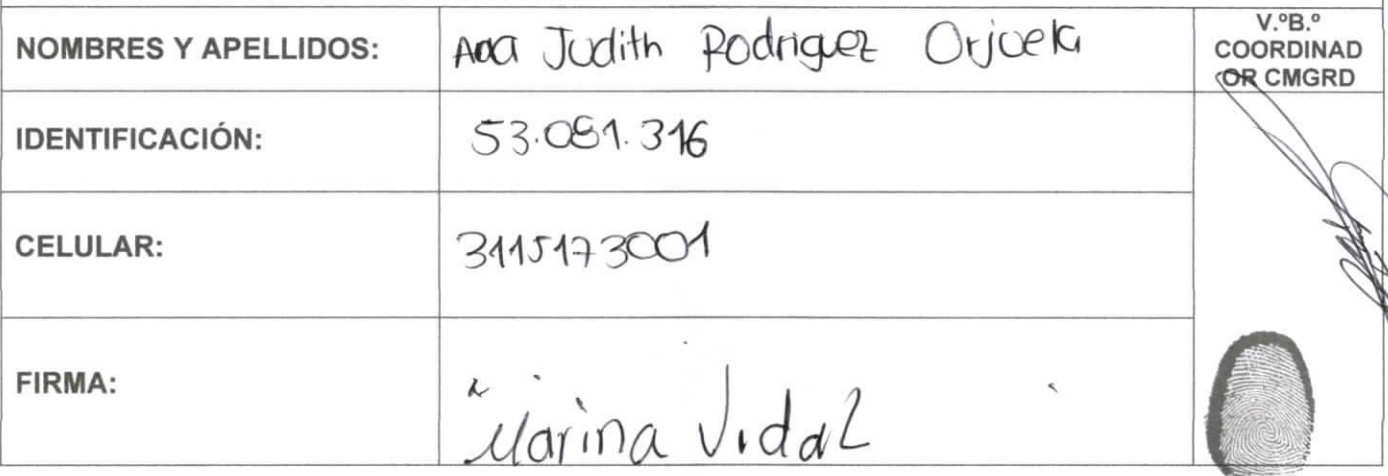 NOMBRES Y APELLIDOS: Ana Judith Rodriguez Orjuela
V.ºB.º
COORDINAD
OR CMGRD
IDENTIFICACIÓN: 53.081.316
CELULAR: 3115173001
FIRMA: Marina Vidal